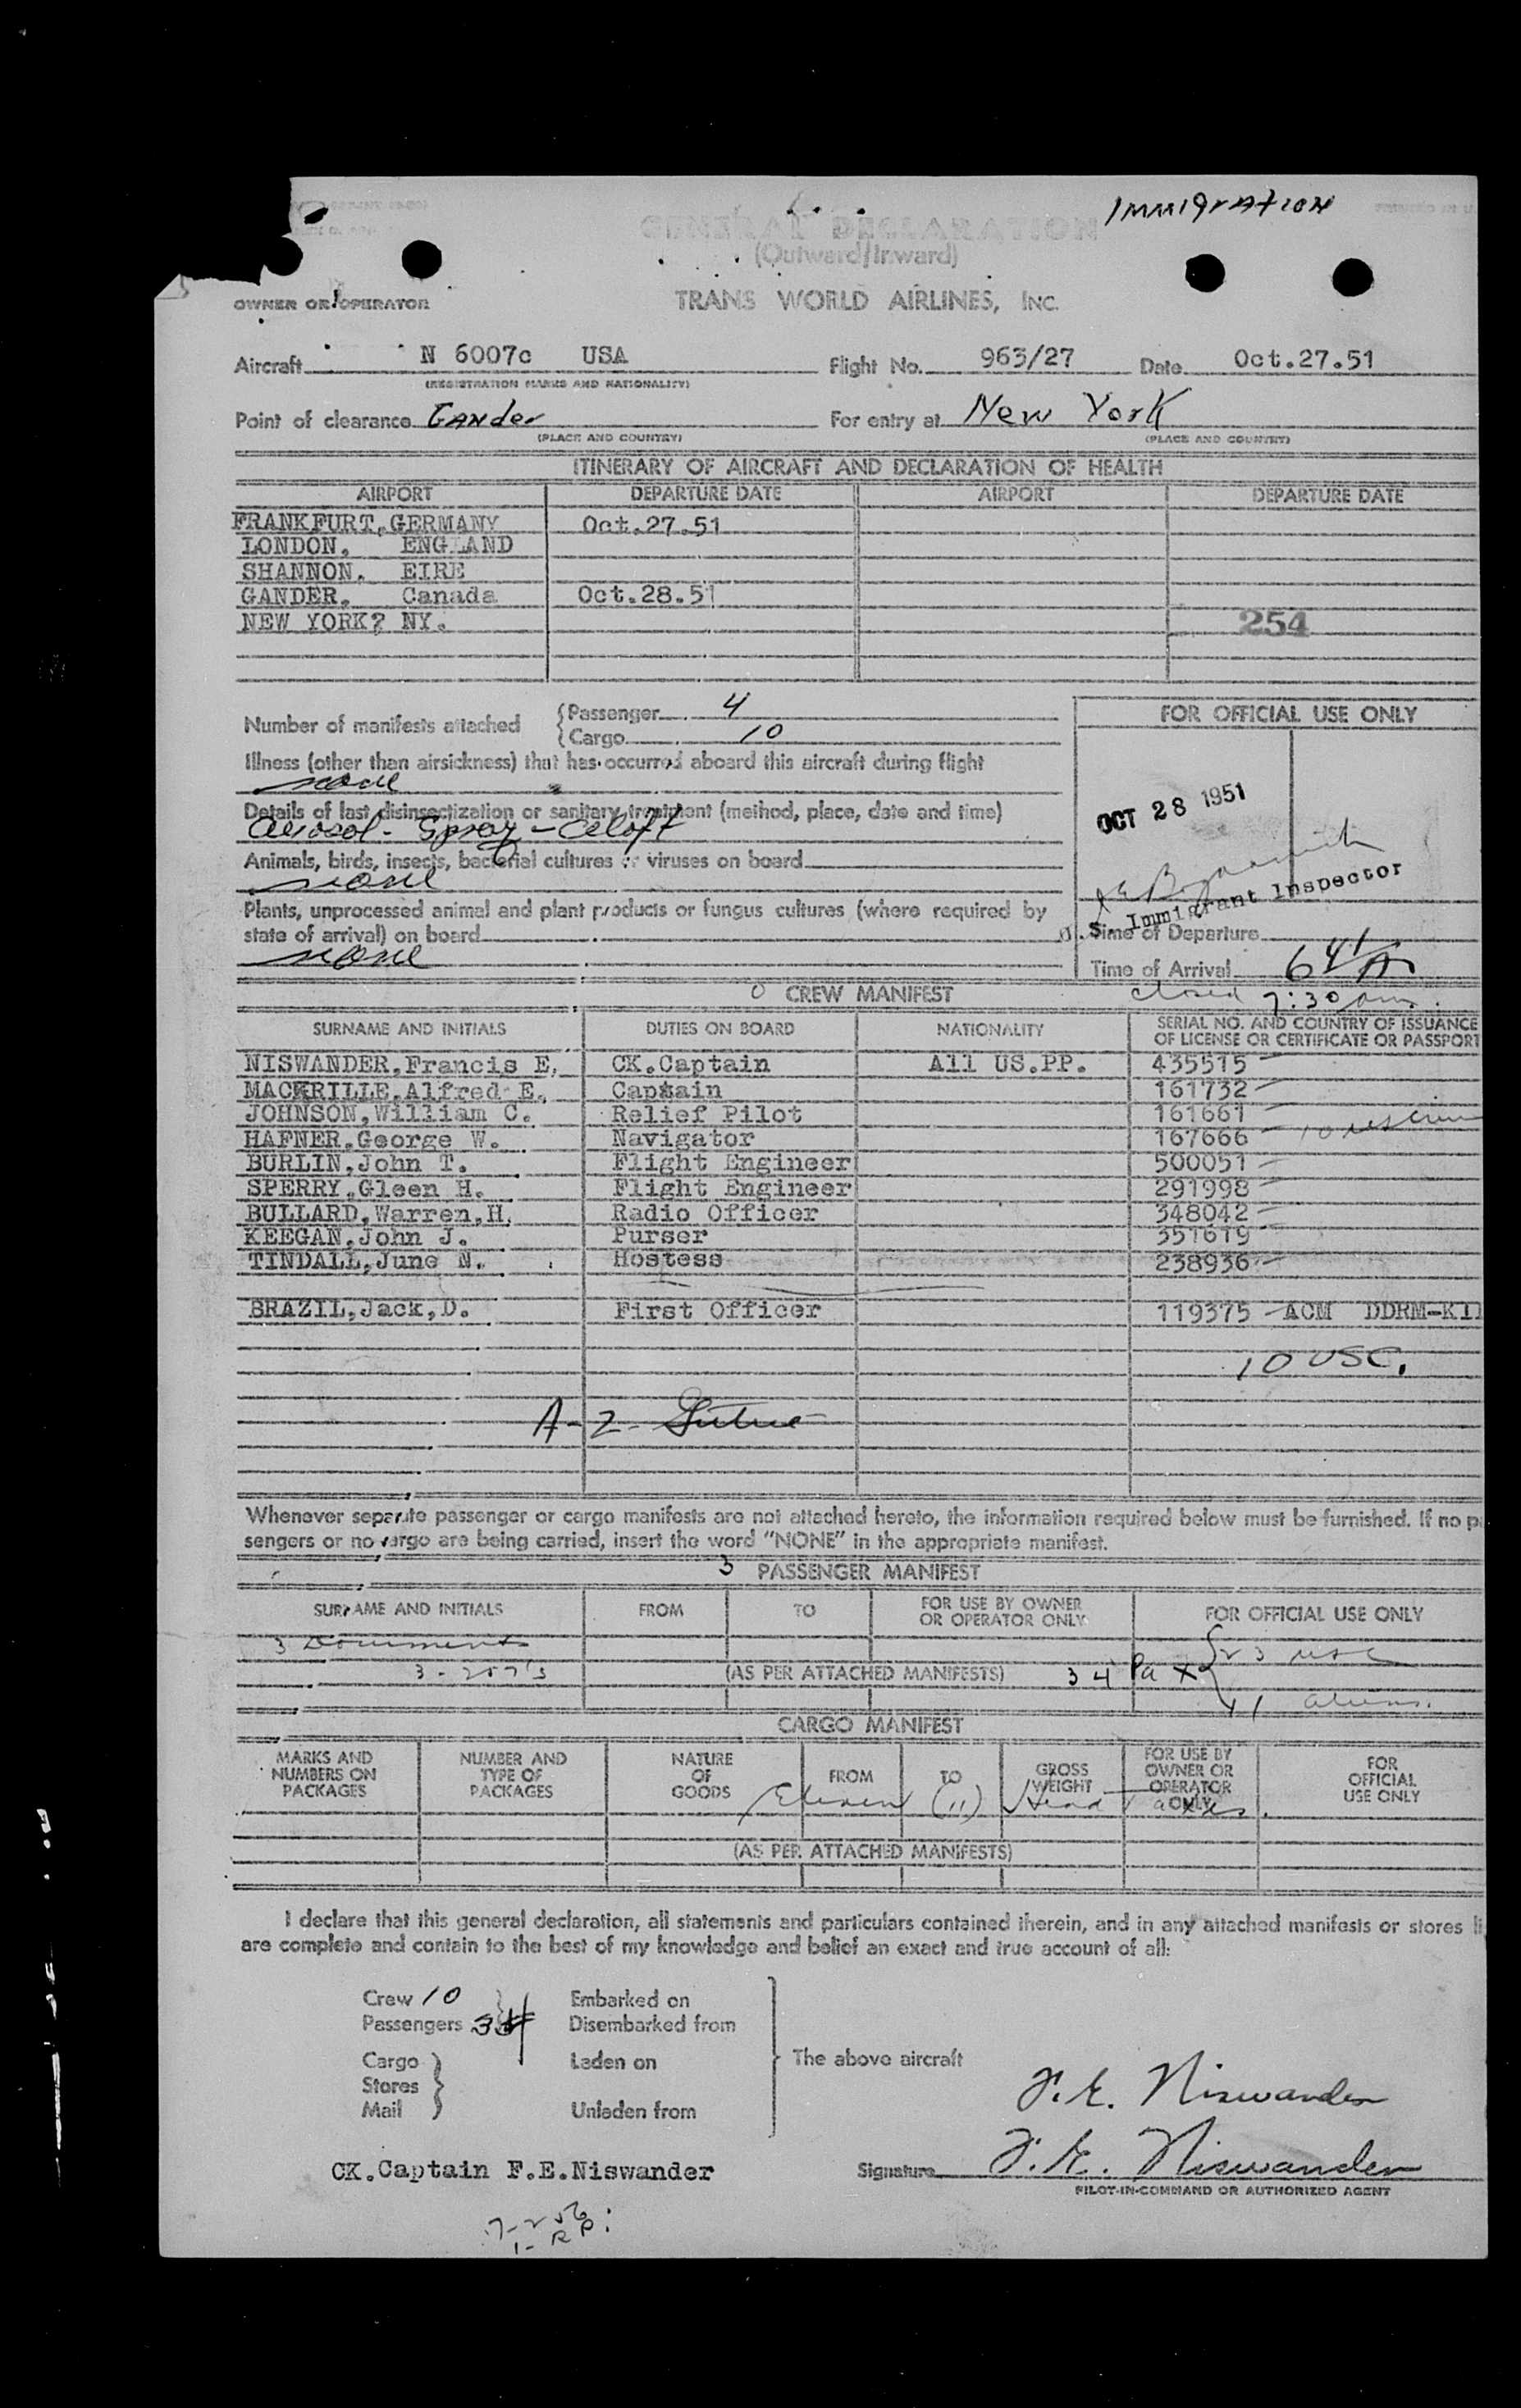 Immigration
GENERAL DECLARATION
(Outward/Inward)
OWNER OR OPERATOR
TRANS WORLD AIRLINES, INC.
Aircraft N 6007c USA Flight No. 963/27 Date Oct.27.51
(REGISTRATION MARKS AND NATIONALITY)
Point of clearance Gander For entry at New York
(PLACE AND COUNTRY) (PLACE AND COUNTRY)
ITINERARY OF AIRCRAFT AND DECLARATION OF HEALTH
AIRPORT DEPARTURE DATE AIRPORT DEPARTURE DATE
FRANKFURT,GERMANY Oct.27.51
LONDON, ENGLAND
SHANNON, EIRE
GANDER, Canada Oct.28.51
NEW YORK? NY.
254
Number of manifests attached
Passenger 4
Cargo 10
FOR OFFICIAL USE ONLY
Illness (other than airsickness) that has occurred aboard this aircraft during flight
none
Details of last disinsectization or sanitary treatment (method, place, date and time)
Aerosol - Spray - Aloft
OCT 28 1951
Animals, birds, insects, bacterial cultures or viruses on board
none
Immigrant Inspector
Plants, unprocessed animal and plant products or fungus cultures (where required by
state of arrival) on board
none
Time of Departure
Time of Arrival 6 41/A
closed 7:30 am.
CREW MANIFEST
SURNAME AND INITIALS DUTIES ON BOARD NATIONALITY SERIAL NO. AND COUNTRY OF ISSUANCE
OF LICENSE OR CERTIFICATE OR PASSPORT
NISWANDER,Francis E. CK.Captain All US.PP. 435515
MACKRILLE,Alfred E. Captain 161732
JOHNSON,William C. Relief Pilot 161661
HAFNER,George W. Navigator 167666
BURLIN,John T. Flight Engineer 500051
SPERRY,Gleen H. Flight Engineer 291998
BULLARD,Warren,H. Radio Officer 348042
KEEGAN,John J. Purser 351619
TINDALL,June N. Hostess 238936
BRAZIL,Jack,D. First Officer 119375 - ACM DDRM-KI
10 USC.
A-2-
Whenever separate passenger or cargo manifests are not attached hereto, the information required below must be furnished. If no p
sengers or no cargo are being carried, insert the word "NONE" in the appropriate manifest.
3 PASSENGER MANIFEST
SURNAME AND INITIALS FROM TO FOR USE BY OWNER
OR OPERATOR ONLY FOR OFFICIAL USE ONLY
3 Documents
3 - 257's (AS PER ATTACHED MANIFESTS) 34 Pax 23 USC
11 aliens.
CARGO MANIFEST
MARKS AND
NUMBERS ON
PACKAGES
NUMBER AND
TYPE OF
PACKAGES
NATURE
OF
GOODS
FROM
TO
GROSS
WEIGHT
FOR USE BY
OWNER OR
OPERATOR
ONLY
FOR
OFFICIAL
USE ONLY
Eleven (11) Head Taxes.
(AS PER ATTACHED MANIFESTS)
I declare that this general declaration, all statements and particulars contained therein, and in any attached manifests or stores li
are complete and contain to the best of my knowledge and belief an exact and true account of all:
Crew 10 Embarked on
Passengers 34 Disembarked from
Cargo Laden on The above aircraft
Stores
Mail Unladen from
F. E. Niswander
CK.Captain F.E.Niswander Signature F. E. Niswander
PILOT-IN-COMMAND OR AUTHORIZED AGENT